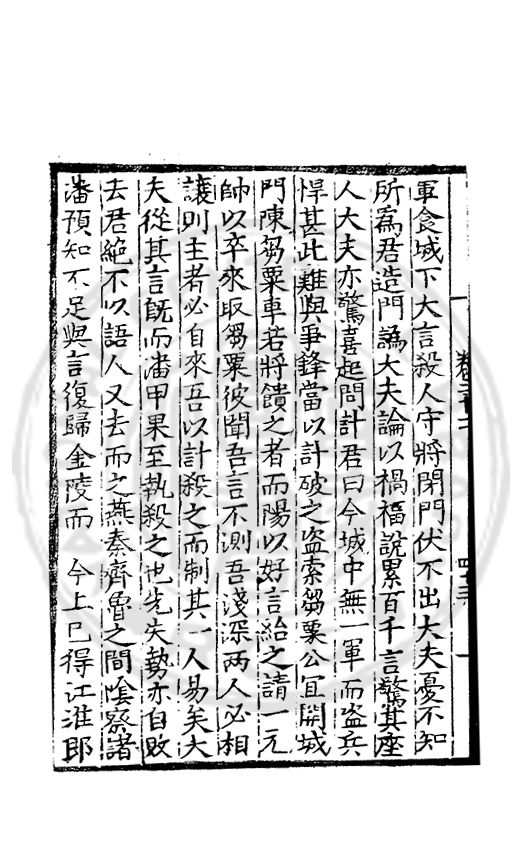 軍食城下大言殺人守將閉門伏不出大夫憂不知
所爲君造門爲大夫論以禍福說累百千言驚其座
人大夫亦驚喜起問計君曰今城中無一軍而盗兵
悍甚此難與爭鋒當以計破之盗索芻粟公宜開城
門陳芻粟車若將饋之者而陽以好言紿之請一元
帥以卒來取芻粟彼聞吾言不測吾淺深兩人必相
讓則主者必自來吾以計殺之而制其一人易矣大
夫從其言旣而潘甲果至執殺之也先失勢亦自敗
去君絶不以語人又去而之燕秦齊魯之間隂察諸
潘預知不足與言復歸金陵而　今上已得江淮郎